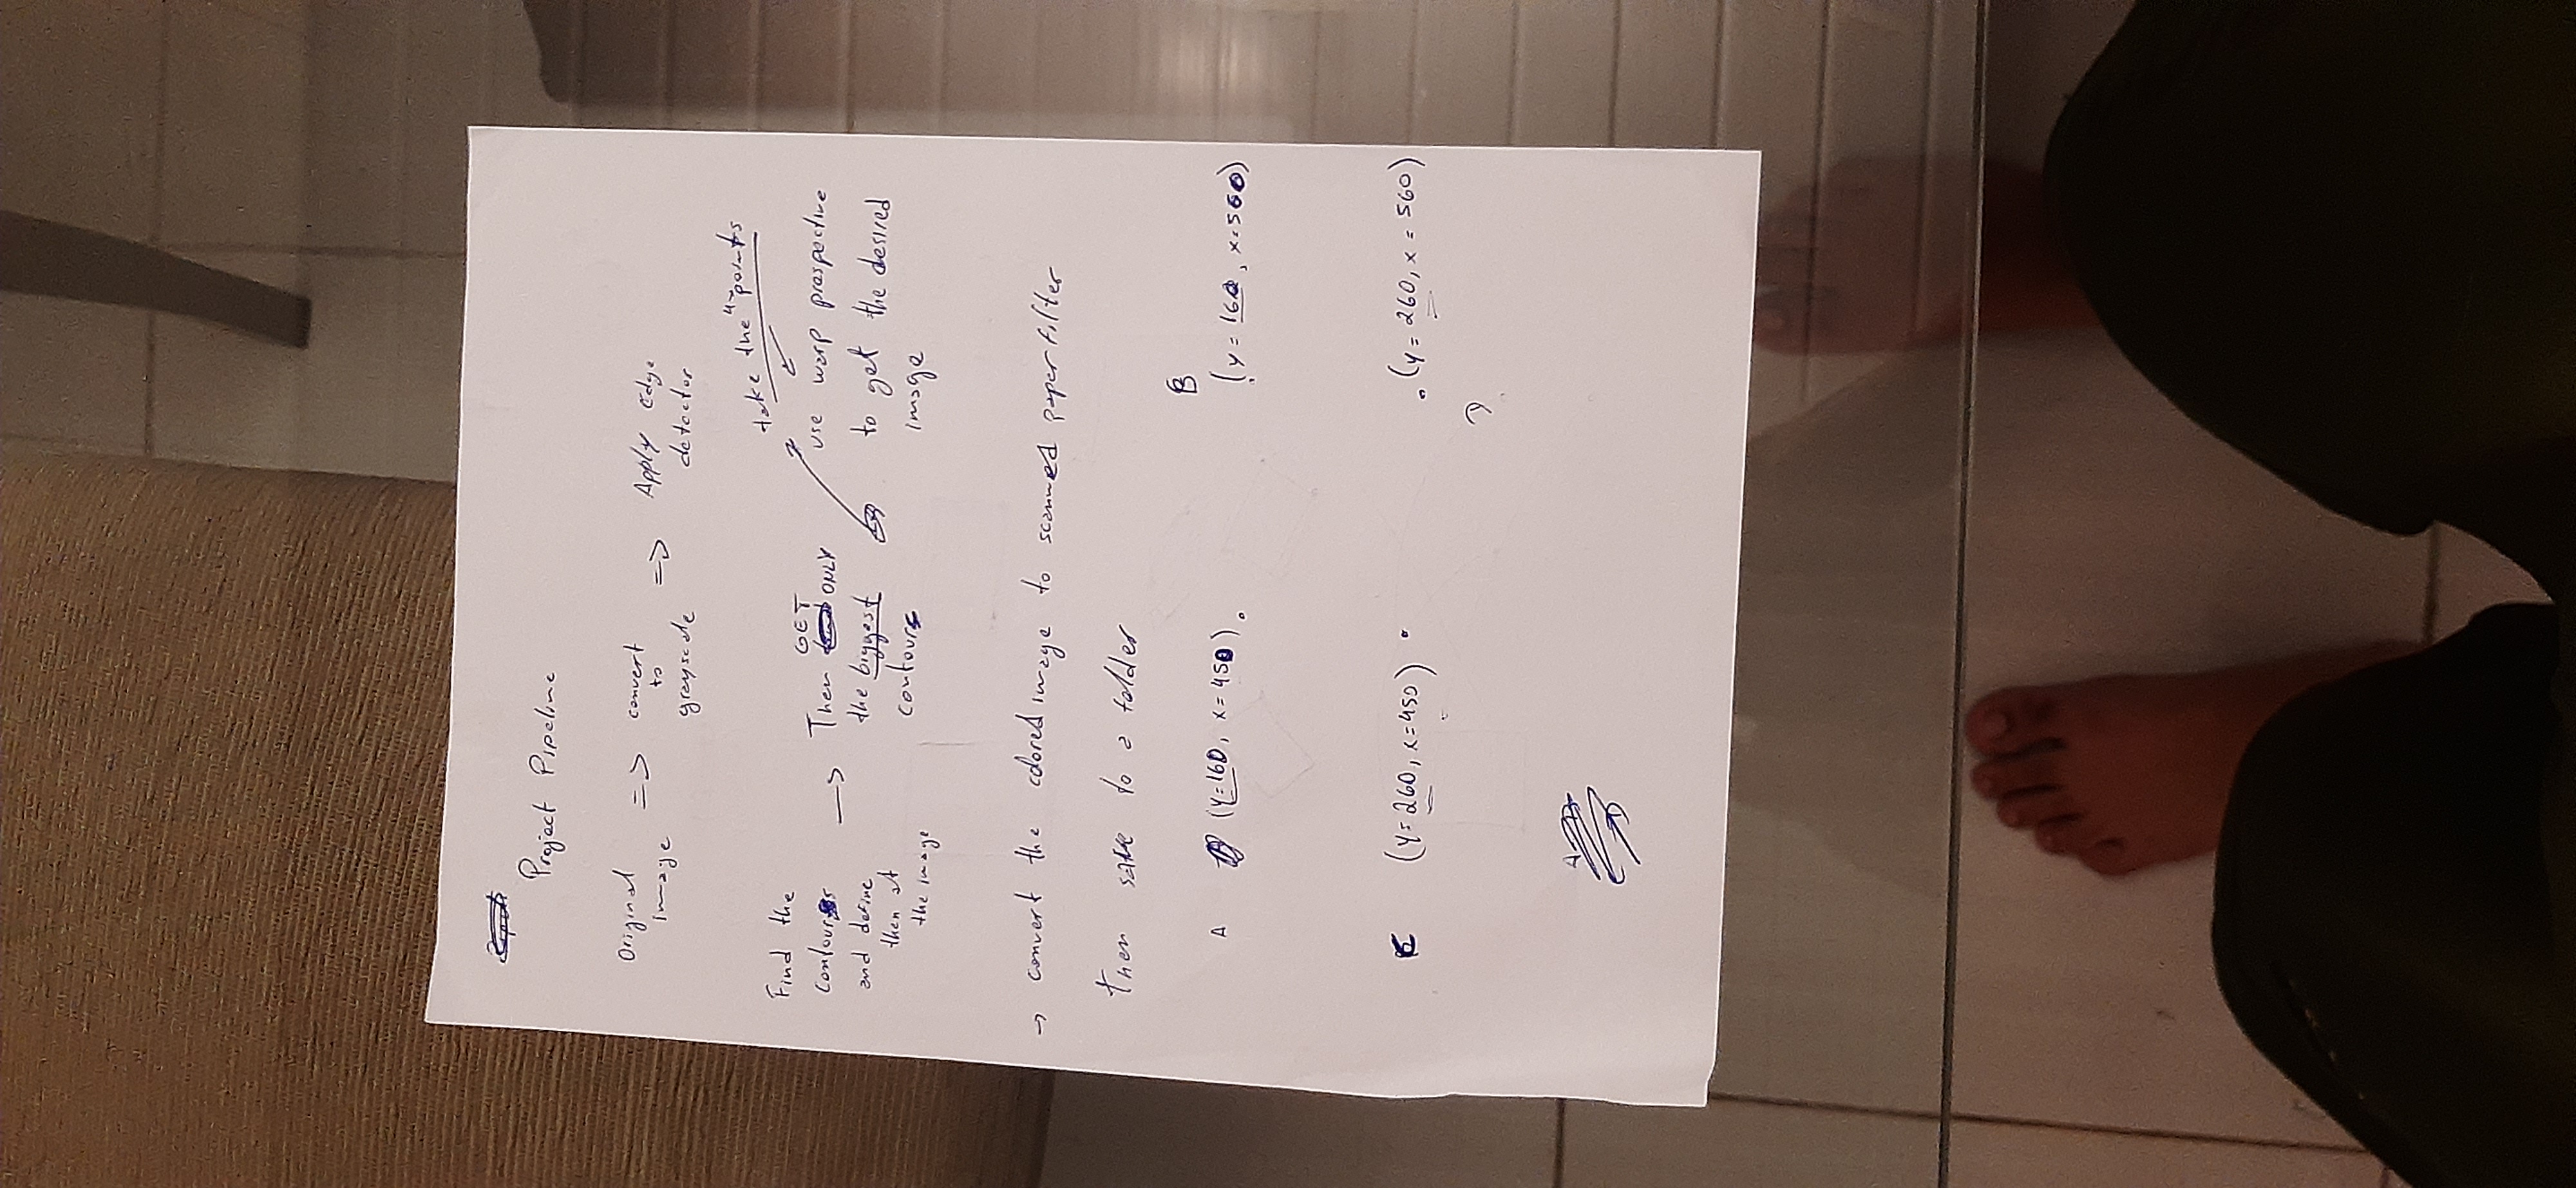 Project Pipeline
Original image => convert to grayscale => Apply Edge detector
Find the
contours
and define
then at
the image
->
GET
Then ONLY
the biggest
contours
take the 4 points
use warp prespective
to get the desired
image
-> convert the colored image to scanned paper filter
then save to a folder
A (y=160, x=450).
B
(y=160, x=560)
C (y=260, x=450) .
. (y=260, x=560)
D